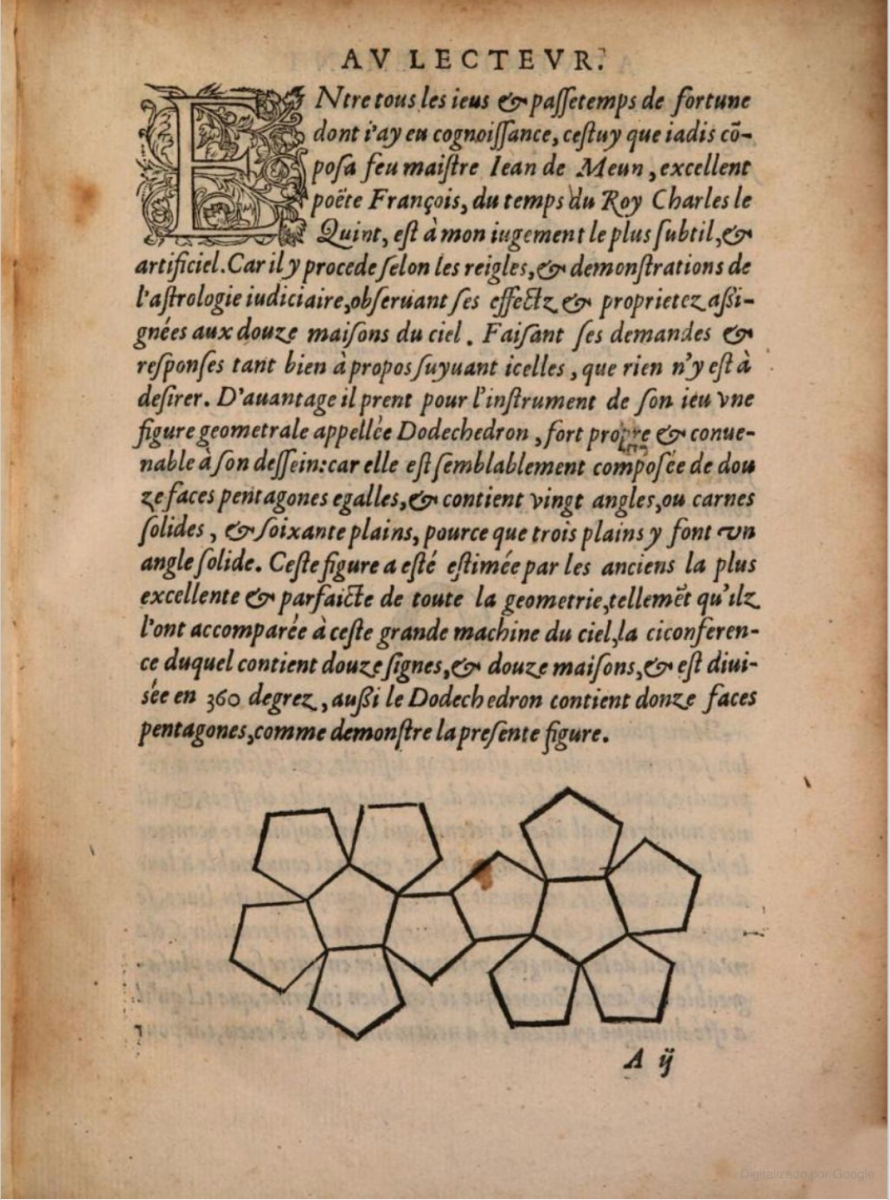 AV LECTEVR.
ENtre tous les ieus & paſſetemps de fortune
dont i'ay eu cognoiſſance, ceſtuy que iadis cõ-
poſa feu maiſtre Iean de Meun, excellent
poëte François, du temps du Roy Charles le
Quint, eſt à mon iugement le plus ſubtil, &
artificiel. Car il y procede ſelon les reigles, & demonſtrations de
l'aſtrologie iudiciaire, obſeruant ſes effectz & proprietez aßi-
gnées aux douze maiſons du ciel. Faiſant ſes demandes &
reſponſes tant bien à propos ſuyuant icelles, que rien n'y eſt à
deſirer. D'auantage il prent pour l'inſtrument de ſon ieu vne
figure geometrale appellée Dodechedron, fort propre & conue-
nable à ſon deſſein: car elle eſt ſemblablement compoſée de dou
ze faces pentagones egalles, & contient vingt angles, ou carnes
ſolides, & ſoixante plains, pource que trois plains y font vn
angle ſolide. Ceſte figure a eſté eſtimée par les anciens la plus
excellente & parfaicte de toute la geometrie, tellemẽt qu'ilz
l'ont accomparée à ceſte grande machine du ciel, la ciconferen-
ce duquel contient douze ſignes, & douze maiſons, & eſt diui-
sée en 360 degrez, außi le Dodechedron contient donze faces
pentagones, comme demonſtre la preſente figure.
A ij
Digitalizado por Google